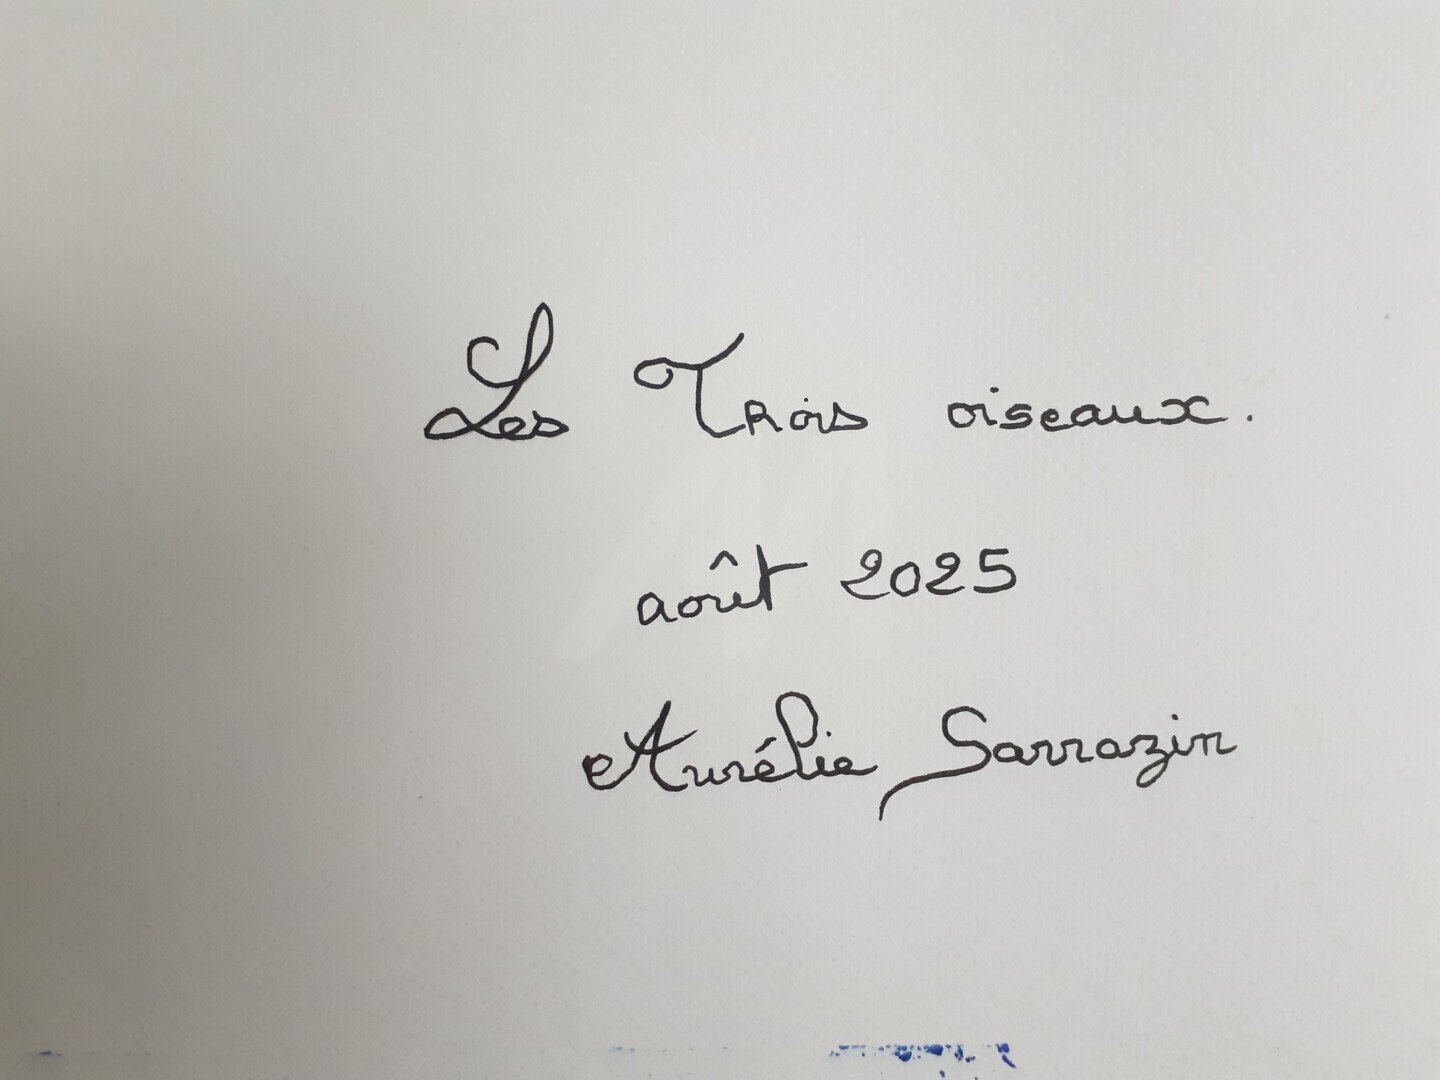 Les Trois oiseaux.
août 2025
Aurélie Sarrazin